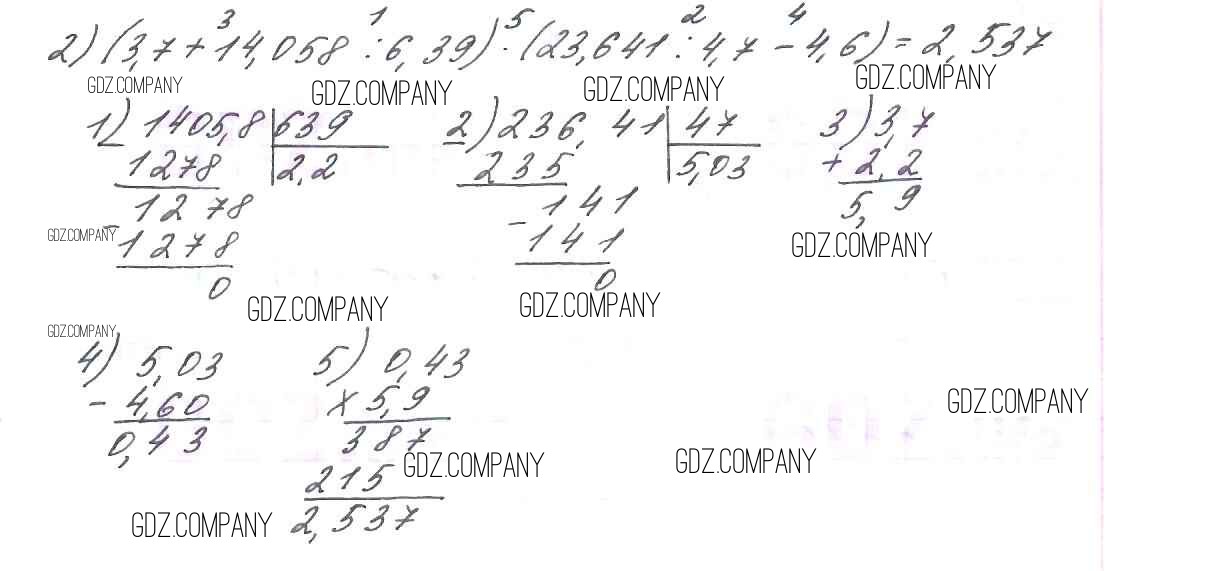 3 1 5 2 4
2) (3,7 + 14,058 : 6,39) · (23,641 : 4,7 - 4,6) = 2,537
GDZ.COMPANY GDZ.COMPANY GDZ.COMPANY GDZ.COMPANY
1) 1405,8 | 639 2) 236,41 | 47 3) 3,7
- 1278 2,2 - 235 5,03 + 2,2
1278 141 5,9
GDZ.COMPANY - 1278 - 141 GDZ.COMPANY
0 0
GDZ.COMPANY GDZ.COMPANY
GDZ.COMPANY
4) 5,03 5) 0,43
- 4,60 × 5,9 GDZ.COMPANY
0,43 387
GDZ.COMPANY GDZ.COMPANY
215
GDZ.COMPANY 2,537